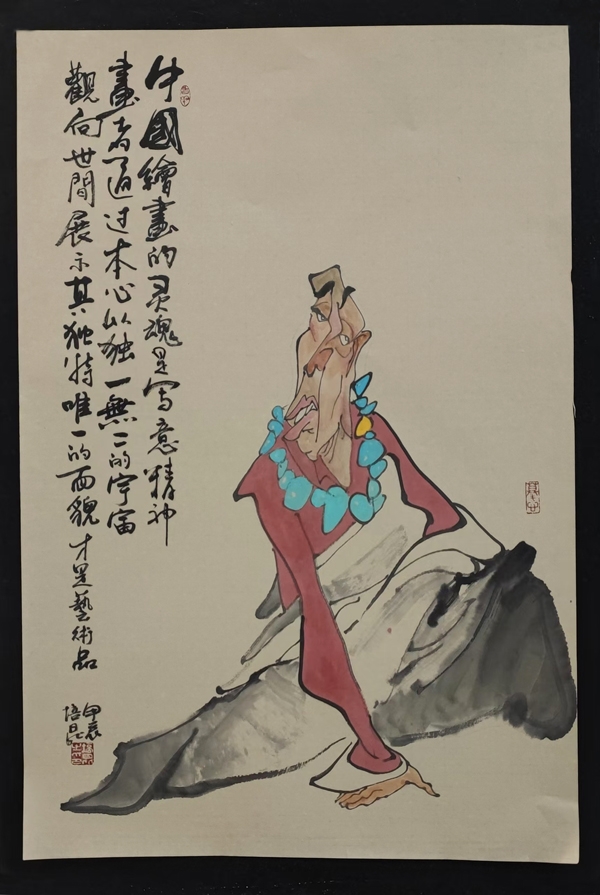 中國繪畫的灵魂是写意精神
畫者通过本心以独一無二的宇宙
觀向世間展示其独特唯一的面貌才是藝術品
甲辰
培昆